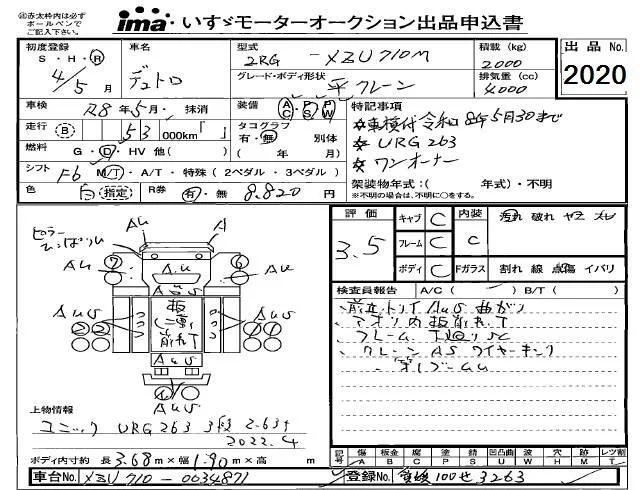 ㊟赤太枠内は必ず
ボールペンで
ご記入下さい。
ima・いすゞモーターオークション出品申込書
初度登録
S・H・R
4/5月
車名
デュトロ
型式
2RG-XZU710M
グレード・ボディ形状
平クレーン
積載(kg)
2000
排気量(cc)
4000
出品No.
2020
車検 R8年5月・抹消
走行(B) 53 000km「 」
燃料 G・D・HV 他( )
シフト F6 M/T・A/T・特殊(2ペダル・3ペダル)
色 白 指定 R券 有・無 8.820円
装備 AC・PS・PW
タコグラフ 別体
有・無 ( 年 月)
特記事項
☆車検付令和8年5月30まで
☆URG263
☆ワンオーナー
架装物年式:( 年式)・不明
※不明の場合は、不明に○をする。
評価
3.5
キャブ C
フレーム C
ボディ C
内装 C
Fガラス
汚れ 破れ ヤケ スレ
割れ 線 点傷 イバリ
検査員報告 A/C( ) B/T( )
、アオリ内板削れT
、フレーム 下回りSC
、クレーン AS ワイヤーキンク
第1ブームU
ピラー
AU
A
AU
7
AU
6
AU
AUS
AUS
板
削れT
AUS
AUS
2 2
1 1
AUS
4
AUS
上物情報
ユニック URG263 3段 2.63t
2022.4
ボディ内寸約 長3.68m×幅1.90m×高 m
記号 傷A 板金B 腐C ポンプP 塗S 錆S 凹U 凸凹曲U 波W 穴H 跡M レツ割T
車台No. XZU710-0034871
登録No. 100せ3263